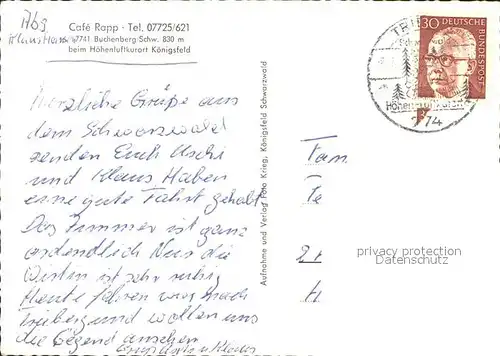 1769
Klaus
Café Rapp · Tel. 07725/621
7741 Buchenberg/Schw. 830 m
beim Höhenluftkurort Königsfeld
Herzliche Grüße aus
dem Schwarzwald
senden Euch Uschi
und Klaus Haben
eine gute Fahrt gehabt
Das Zimmer ist ganz
ordendlich Nur die
ist sehr ruhig
Heute fahren wir nach
Triberg und wollen uns
die Gegend ansehen
Gruß Uschi u Klaus
Aufnahme und Verlag Foto Krieg, Königsfeld Schwarzwald
30 DEUTSCHE BUNDESPOST
TRI
Höhenluftkurort
774
Fam
privacy protection
watermark